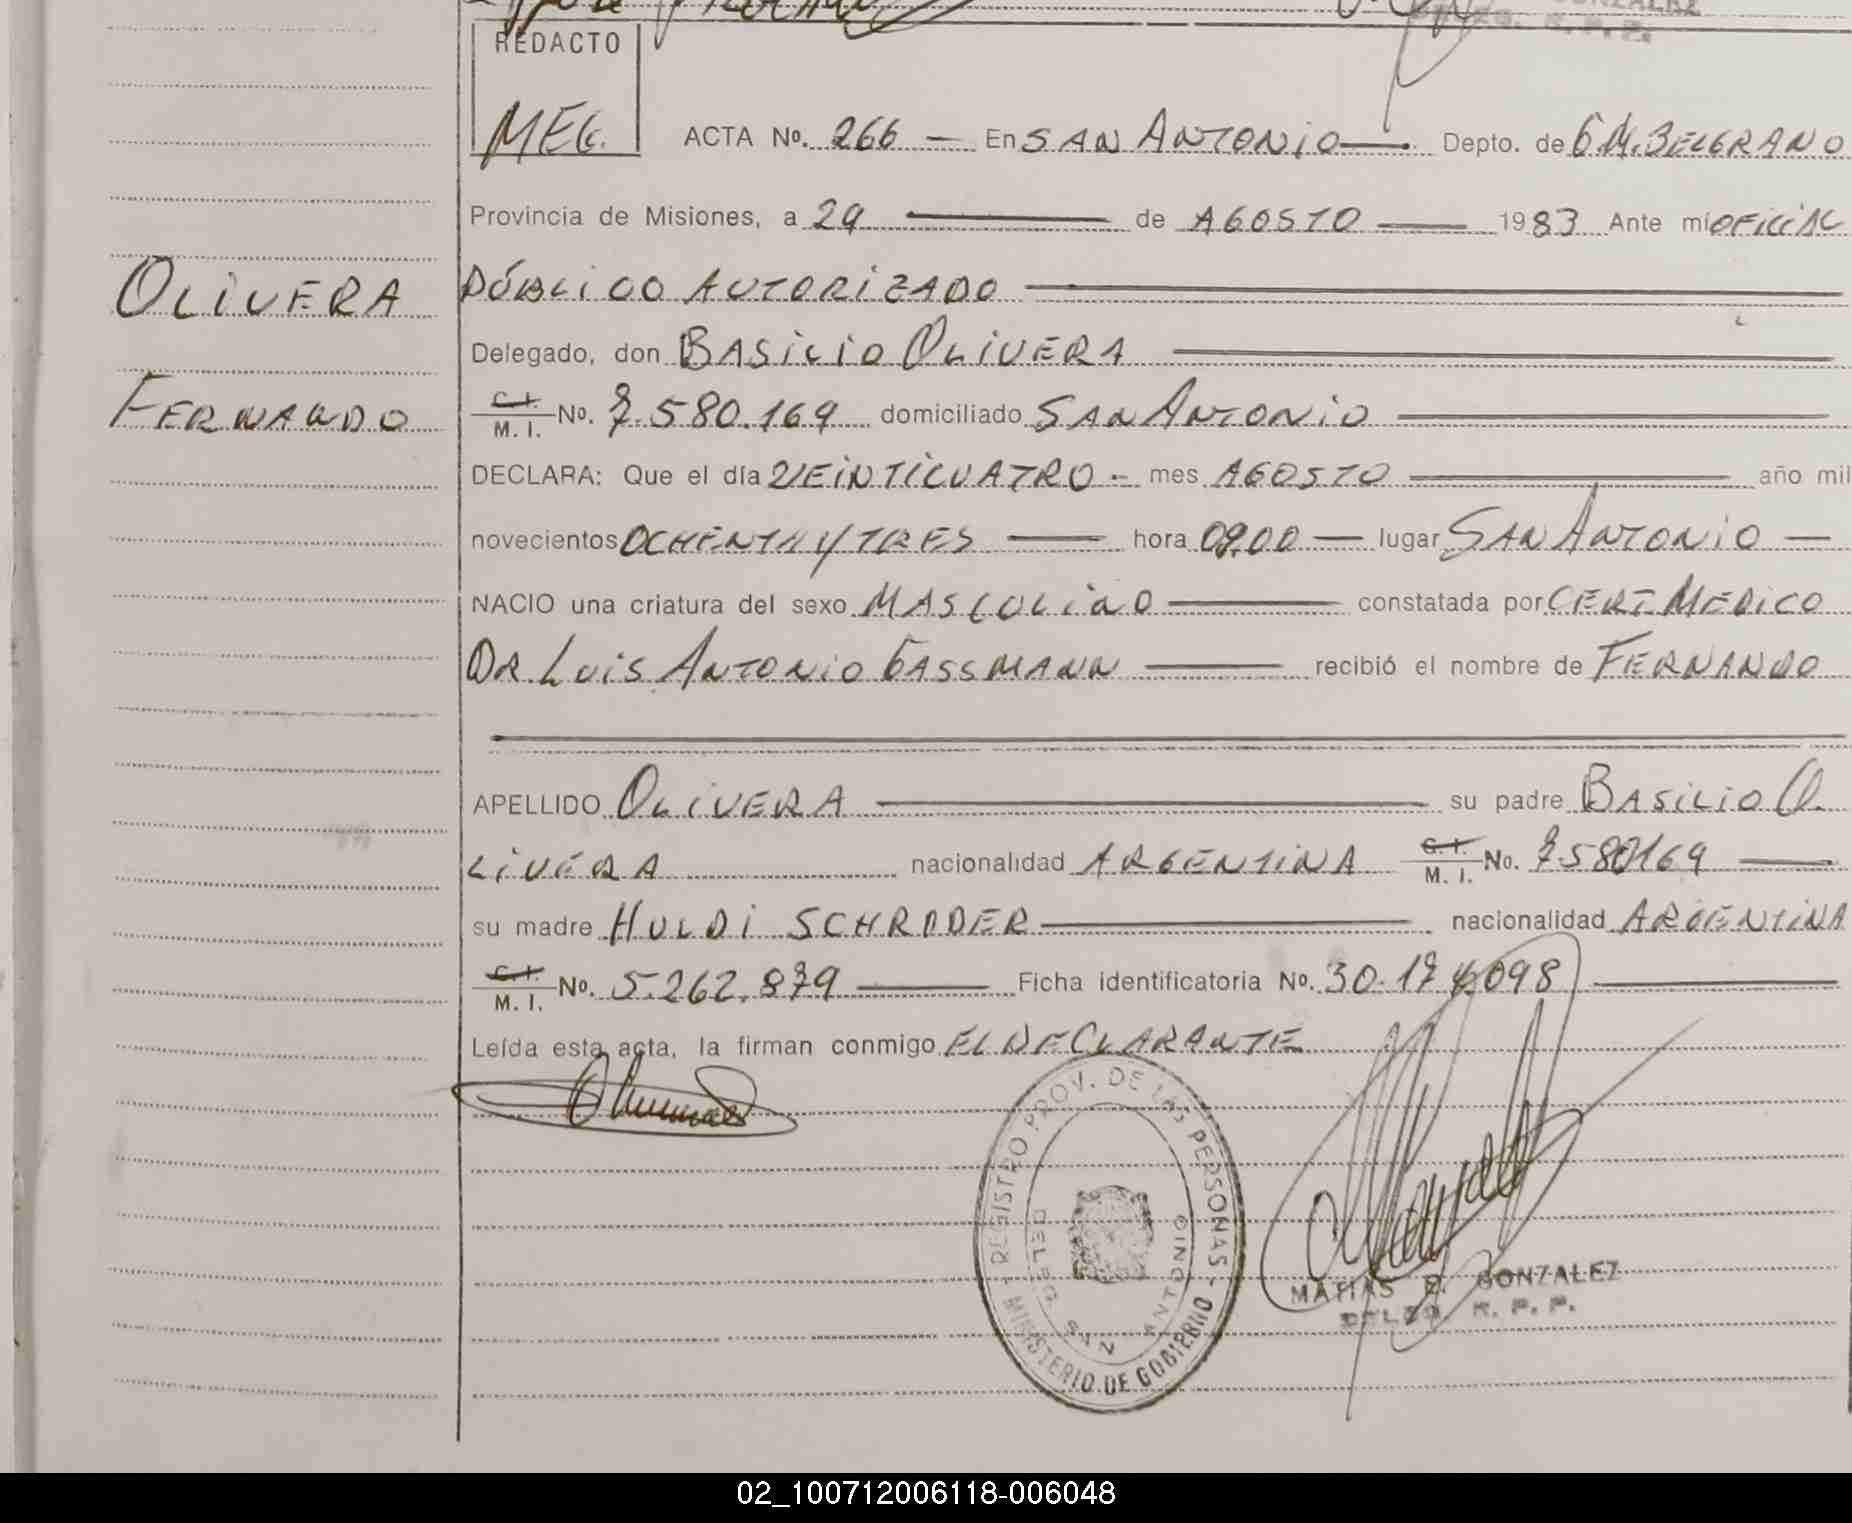 REDACTO
MEG.
ACTA No. 266 — En SAN ANTONIO — Depto. de G M. BELGRANO
Provincia de Misiones, a 29 — de AGOSTO — 1983 Ante mí OFICIAL
OLIVERA
PÚBLICO AUTORIZADO
Delegado, don BASILIO OLIVERA
FERNANDO
C. I. M. I. No. 7.580.169 domiciliado SAN ANTONIO
DECLARA: Que el día VEINTICUATRO - mes AGOSTO — año mil
novecientos OCHENTA Y TRES — hora 09,00 — lugar SAN ANTONIO —
NACIO una criatura del sexo MASCULINO — constatada por CERT. MEDICO
DR. LUIS ANTONIO GASSMANN — recibió el nombre de FERNANDO
APELLIDO OLIVERA — su padre BASILIO O.
LIVERA nacionalidad ARGENTINA C. I. M. I. No. 7580169 —
su madre HULDI SCHRODER — nacionalidad ARGENTINA
C. I. M. I. No. 5.262.879 — Ficha identificatoria No. 30.174.098 —
Leída esta acta, la firman conmigo EL DECLARANTE
REGISTRO PROV. DE LAS PERSONAS - MINISTERIO DE GOBIERNO -
DELEG. SAN ANTONIO
MATIAS E. GONZALEZ
DELEG. R. P. P.
02_100712006118-006048